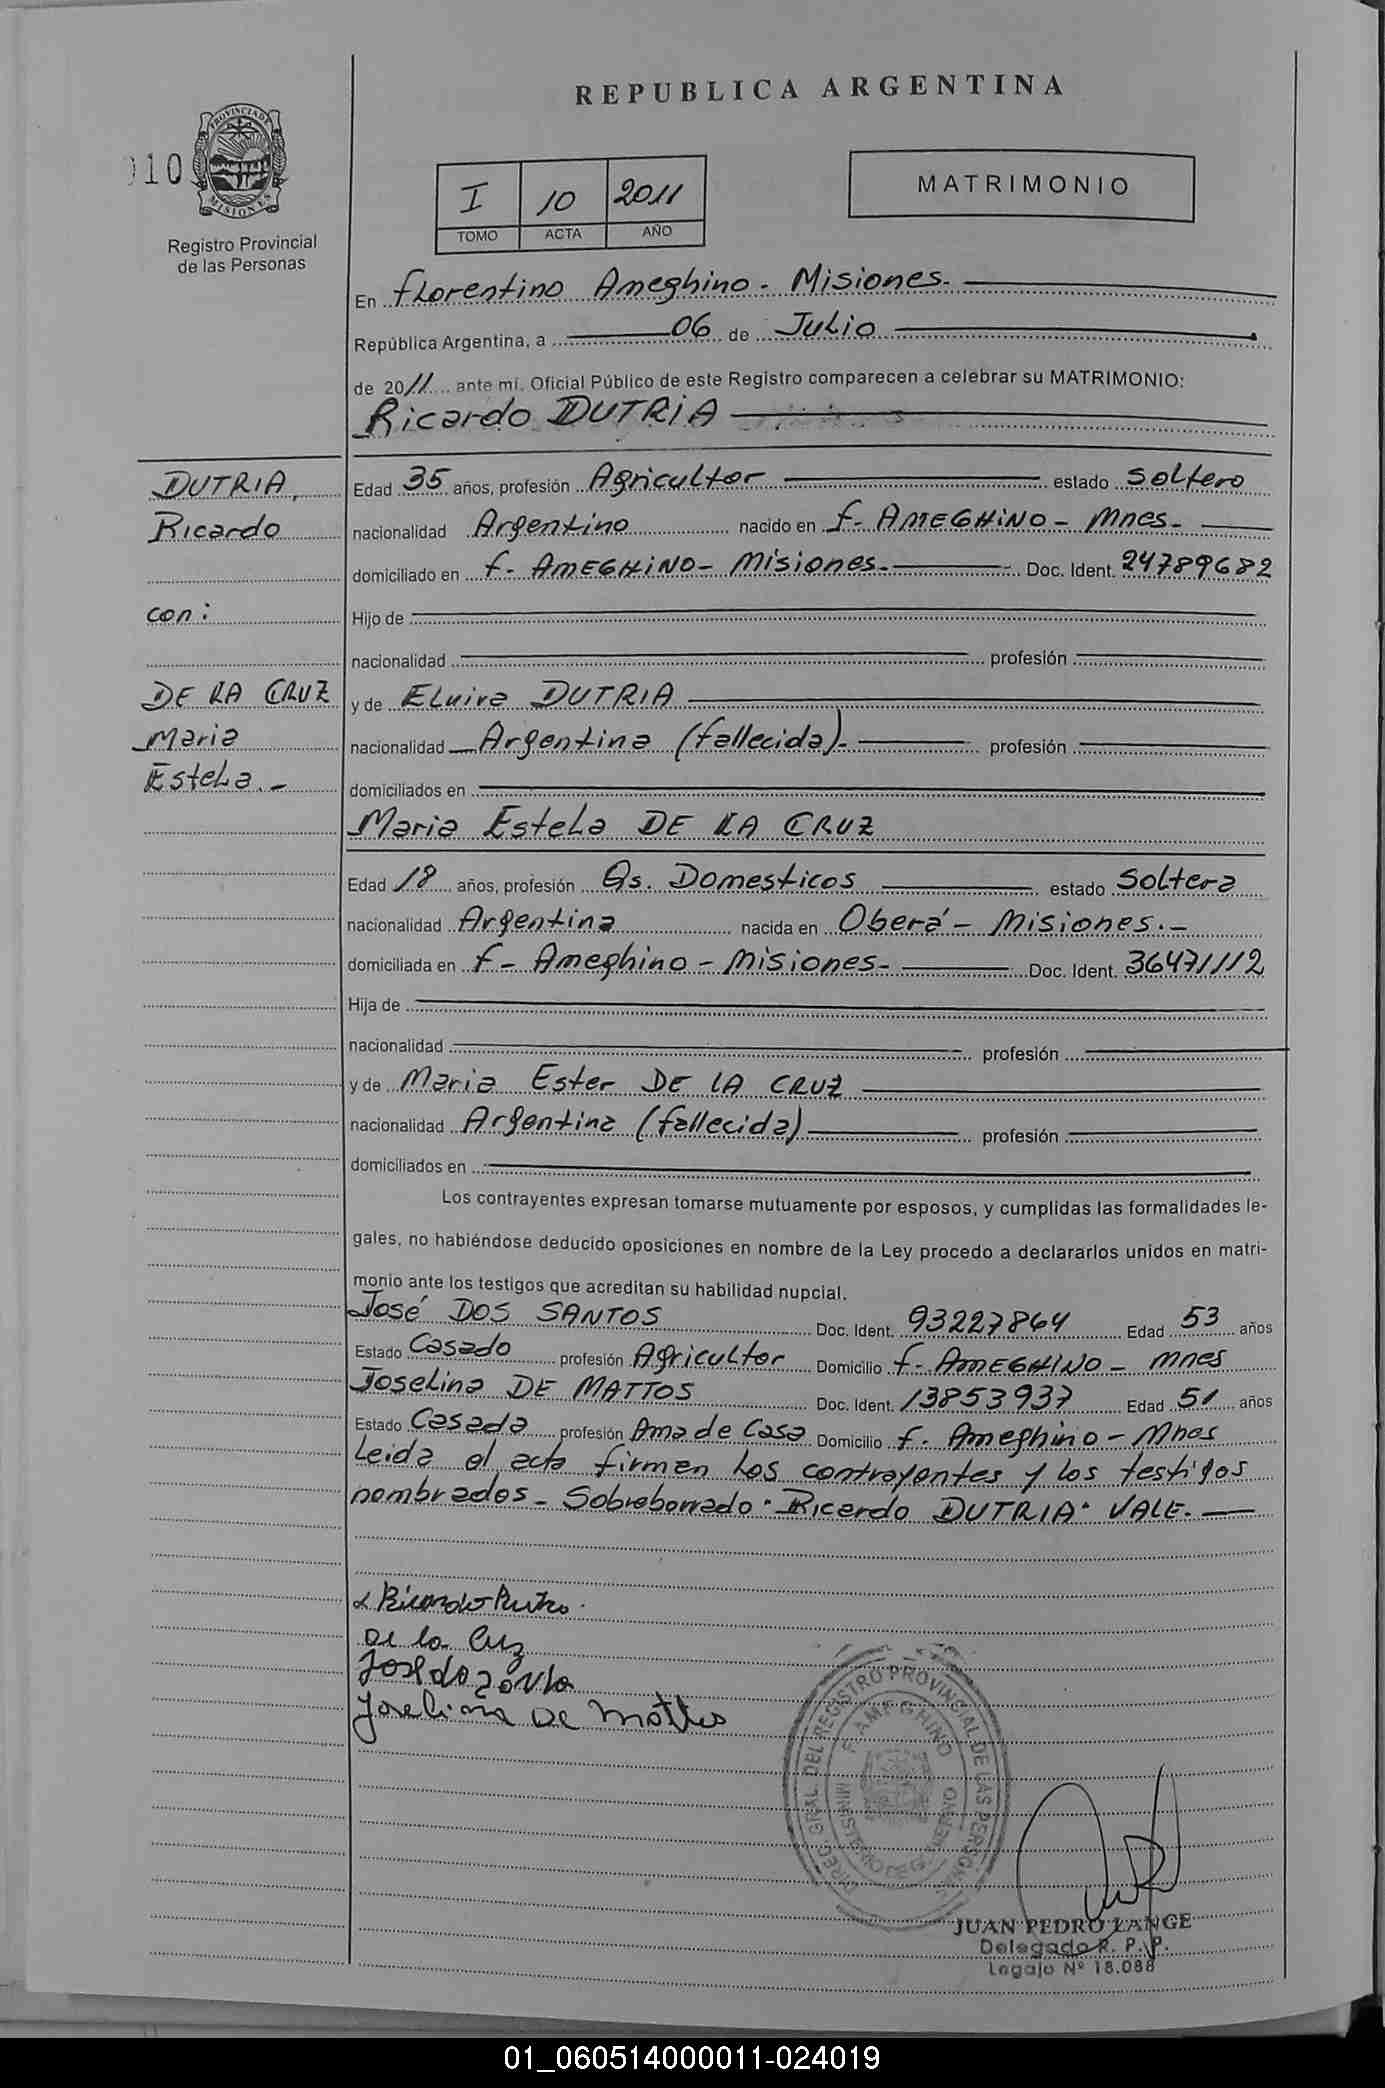 REPUBLICA ARGENTINA
010
PROVINCIA DE MISIONES
Registro Provincial
de las Personas
I 10 2011
TOMO ACTA AÑO
MATRIMONIO
En Florentino Ameghino - Misiones.-
República Argentina, a 06 de Julio
de 2011 ante mí, Oficial Público de este Registro comparecen a celebrar su MATRIMONIO:
Ricardo DUTRIA
DUTRIA,
Ricardo
con:
DE LA CRUZ
Maria
Estela.-
Edad 35 años, profesión Agricultor estado Soltero
nacionalidad Argentino nacido en F- AMEGHINO - Mnes.-
domiciliado en F- AMEGHINO - Misiones.- Doc. Ident. 24789682
Hijo de
nacionalidad profesión
y de Elvira DUTRIA
nacionalidad Argentina (fallecida).- profesión
domiciliados en
Maria Estela DE LA CRUZ
Edad 18 años, profesión Qs. Domesticos estado Soltera
nacionalidad Argentina nacida en Oberá - Misiones.-
domiciliada en F- Ameghino - Misiones- Doc. Ident. 36471112
Hija de
nacionalidad profesión
y de Maria Ester DE LA CRUZ
nacionalidad Argentina (fallecida) profesión
domiciliados en
Los contrayentes expresan tomarse mutuamente por esposos, y cumplidas las formalidades le-
gales, no habiéndose deducido oposiciones en nombre de la Ley procedo a declararlos unidos en matri-
monio ante los testigos que acreditan su habilidad nupcial.
José DOS SANTOS Doc. Ident. 93227864 Edad 53 años
Estado Casado profesión Agricultor Domicilio F- AMEGHINO - Mnes
Joselina DE MATTOS Doc. Ident. 13853937 Edad 51 años
Estado Casada profesión Ama de Casa Domicilio F. Ameghino - Mnes
Leida el acta firman los contrayentes y los testigos
nombrados- Sobreborrado "Ricardo DUTRIA" VALE.-
Ricardo Dutria
De la Cruz
Joseliana De Mattos
DIREC. GRAL. DEL REGISTRO PROVINCIAL DE LAS PERSONAS
F. AMEGHINO
MINISTERIO DE GOBIERNO
JUAN PEDRO LANGE
Delegado R. P. P.
Legajo Nº 18.088
01_060514000011-024019